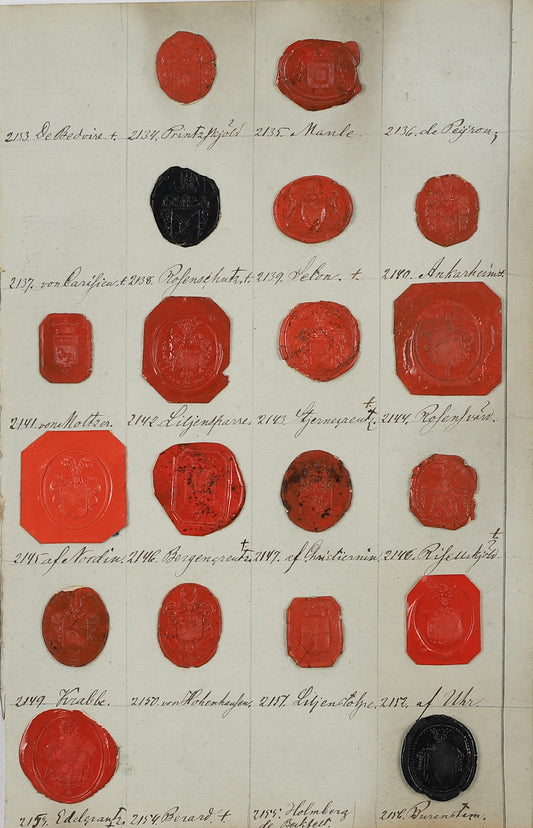 2133. De Bedoire + 2134. Printzskjöld 2135. Manle. 2136. de Peÿron,
2137. von Carisien. + 2138. Rosenschütz. + 2139. Lebon. + 2140. Ankarheim +
2141. von Moltzer. 2142. Liljensparre. 2143. Stjerncreutz. + 2144. Rosensvärd.
2145 af Nordin. 2146. Bergencreutz. + 2147. af Christiernin. 2148. Risellskjöld +
2149. Krabbe. 2150. von Hohenhausen. 2151. Liljenstolpe. 2152. af Uhr.
2153. Edelcrantz. + 2154. Berard. + 2155. Holmberg de Beckfelt. 2156. Burenstam.